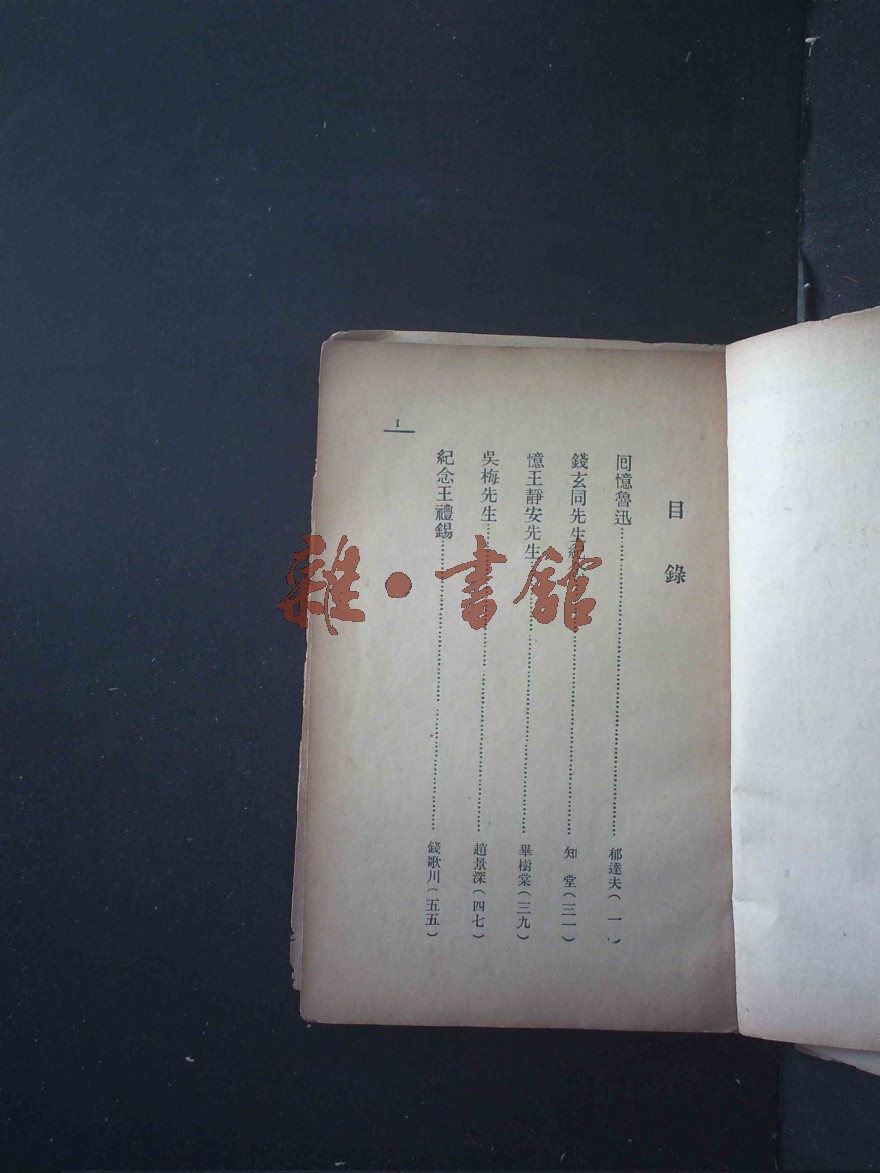 目錄
囘憶魯迅……郁達夫(一)
錢玄同先生紀……知堂(三一)
憶王靜安先生……畢樹棠(三九)
吳梅先生……趙景深(四七)
紀念王禮錫……錢歌川(五五)
I
雜·書館